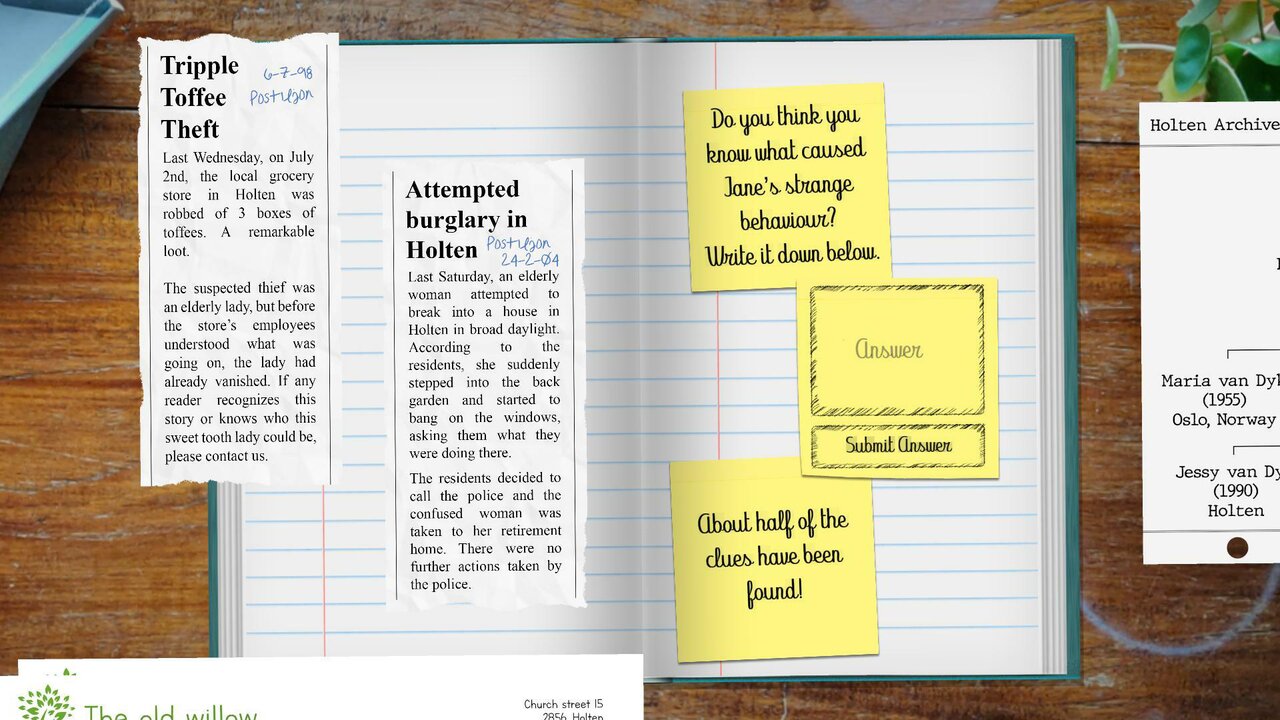 Tripple
Toffee
Theft
6-7-98
Postugon
Last Wednesday, on July
2nd, the local grocery
store in Holten was
robbed of 3 boxes of
toffees. A remarkable
loot.
The suspected thief was
an elderly lady, but before
the store's employees
understood what was
going on, the lady had
already vanished. If any
reader recognizes this
story or knows who this
sweet tooth lady could be,
please contact us.
Attempted
burglary in
Holten
Postugon
24-2-04
Last Saturday, an elderly
woman attempted to
break into a house in
Holten in broad daylight.
According to the
residents, she suddenly
stepped into the back
garden and started to
bang on the windows,
asking them what they
were doing there.
The residents decided to
call the police and the
confused woman was
taken to her retirement
home. There were no
further actions taken by
the police.
Do you think you
know what caused
Jane's strange
behaviour?
Write it down below.
Answer
Submit Answer
About half of the
clues have been
found!
Holten Archive
Maria van Dy
(1955)
Oslo, Norway
Jessy van Dy
(1990)
Holten
The old willow
Church street 15
2856 Holten